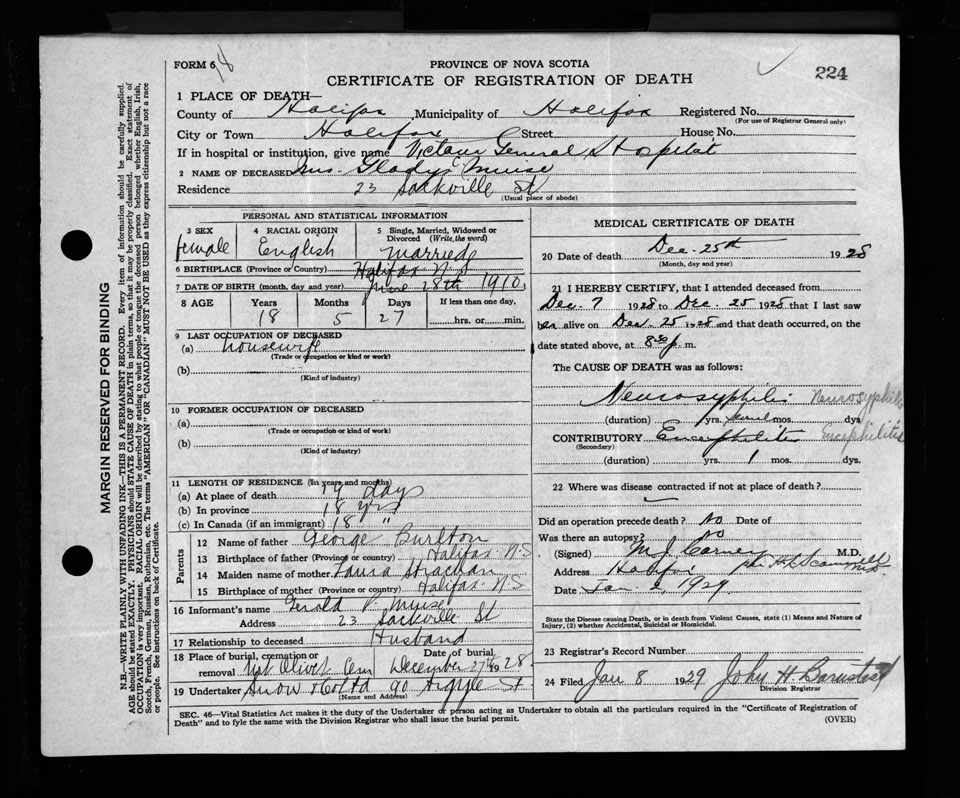 FORM 6.
PROVINCE OF NOVA SCOTIA
CERTIFICATE OF REGISTRATION OF DEATH
224
MARGIN RESERVED FOR BINDING
N.B.—WRITE PLAINLY WITH UNFADING INK—THIS IS A PERMANENT RECORD. Every item of information should be carefully supplied.
AGE should be stated EXACTLY. PHYSICIANS should STATE CAUSE OF DEATH in plain terms, so that it may be properly classified. Exact statement of
OCCUPATION is very important. RACIAL ORIGIN will be described by stating to what people or tongue the deceased person belonged whether English, Irish,
Scotch, French, German, Russian, Ruthenian, etc. The terms "AMERICAN" OR "CANADIAN" MUST NOT BE USED as they express citizenship but not a race
or people. See instructions on back of Certificate.
1 PLACE OF DEATH—
County of Halifax Municipality of Halifax Registered No.
(For use of Registrar General only)
City or Town Halifax Street House No.
If in hospital or institution, give name Victoria General Hospital
2 NAME OF DECEASED Mrs. Gladys C Muise
Residence 23 Sackville St
(Usual place of abode)
PERSONAL AND STATISTICAL INFORMATION
3 SEX female
4 RACIAL ORIGIN English
5 Single, Married, Widowed or Divorced (Write the word) married
6 BIRTHPLACE (Province or Country) Halifax N.S
7 DATE OF BIRTH (month, day and year) June 28th 1910
8 AGE Years Months Days If less than one day,
18 5 27 hrs. or min.
9 LAST OCCUPATION OF DECEASED
(a) housewife
(Trade or occupation or kind or work)
(b)
(Kind of industry)
10 FORMER OCCUPATION OF DECEASED
(a)
(Trade or occupation or kind or work)
(b)
(Kind of industry)
11 LENGTH OF RESIDENCE (In years and months)
(a) At place of death 19 days
(b) In province 18 yrs
(c) In Canada (if an immigrant) 18 "
Parents
12 Name of father George Burlton
13 Birthplace of father (Province or country) Halifax N-S
14 Maiden name of mother Laura Strachan
15 Birthplace of mother (Province or country) Halifax N-S
16 Informant's name Gerald P. Muise
Address 23 Sackville St
17 Relationship to deceased Husband
18 Place of burial, cremation or removal Mt Olivet Cem
Date of burial December 27th 1928.
19 Undertaker Snow & Co Ltd 90 Argyle St
(Name and Address)
MEDICAL CERTIFICATE OF DEATH
20 Date of death Dec. 25th 1928
(Month, day and year)
21 I HEREBY CERTIFY, that I attended deceased from
Dec. 7 1928 to Dec. 25 1928 that I last saw
her alive on Dec. 25 1928 and that death occurred, on the
date stated above, at 8 30 p m.
The CAUSE OF DEATH was as follows:
Neurosyphilis Neurosyphilis
(duration) yrs. mos. dys
CONTRIBUTORY Encephilitis Encephilites
(Secondary)
(duration) yrs. 1 mos. dys.
22 Where was disease contracted if not at place of death?
Did an operation precede death? No Date of
Was there an autopsy? No
(Signed) M. J. Carney M.D.
Address Halifax
Date Jan 2, 1929
State the Disease causing Death, or in death from Violent Causes, state (1) Means and Nature of
Injury, (2) whether Accidental, Suicidal or Homicidal.
23 Registrar's Record Number
24 Filed Jan 8 1929 John H. Barnstead
Division Registrar
SEC. 46—Vital Statistics Act makes it the duty of the Undertaker or person acting as Undertaker to obtain all the particulars required in the "Certificate of Registration of
Death" and to fyle the same with the Division Registrar who shall issue the burial permit.
(OVER)